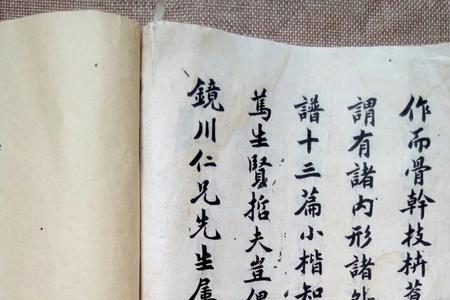 作而骨幹枝枿
謂有諸內形諸外
譜十三篇小楷知
篤生賢哲夫豈偶
鏡川仁兄先生属